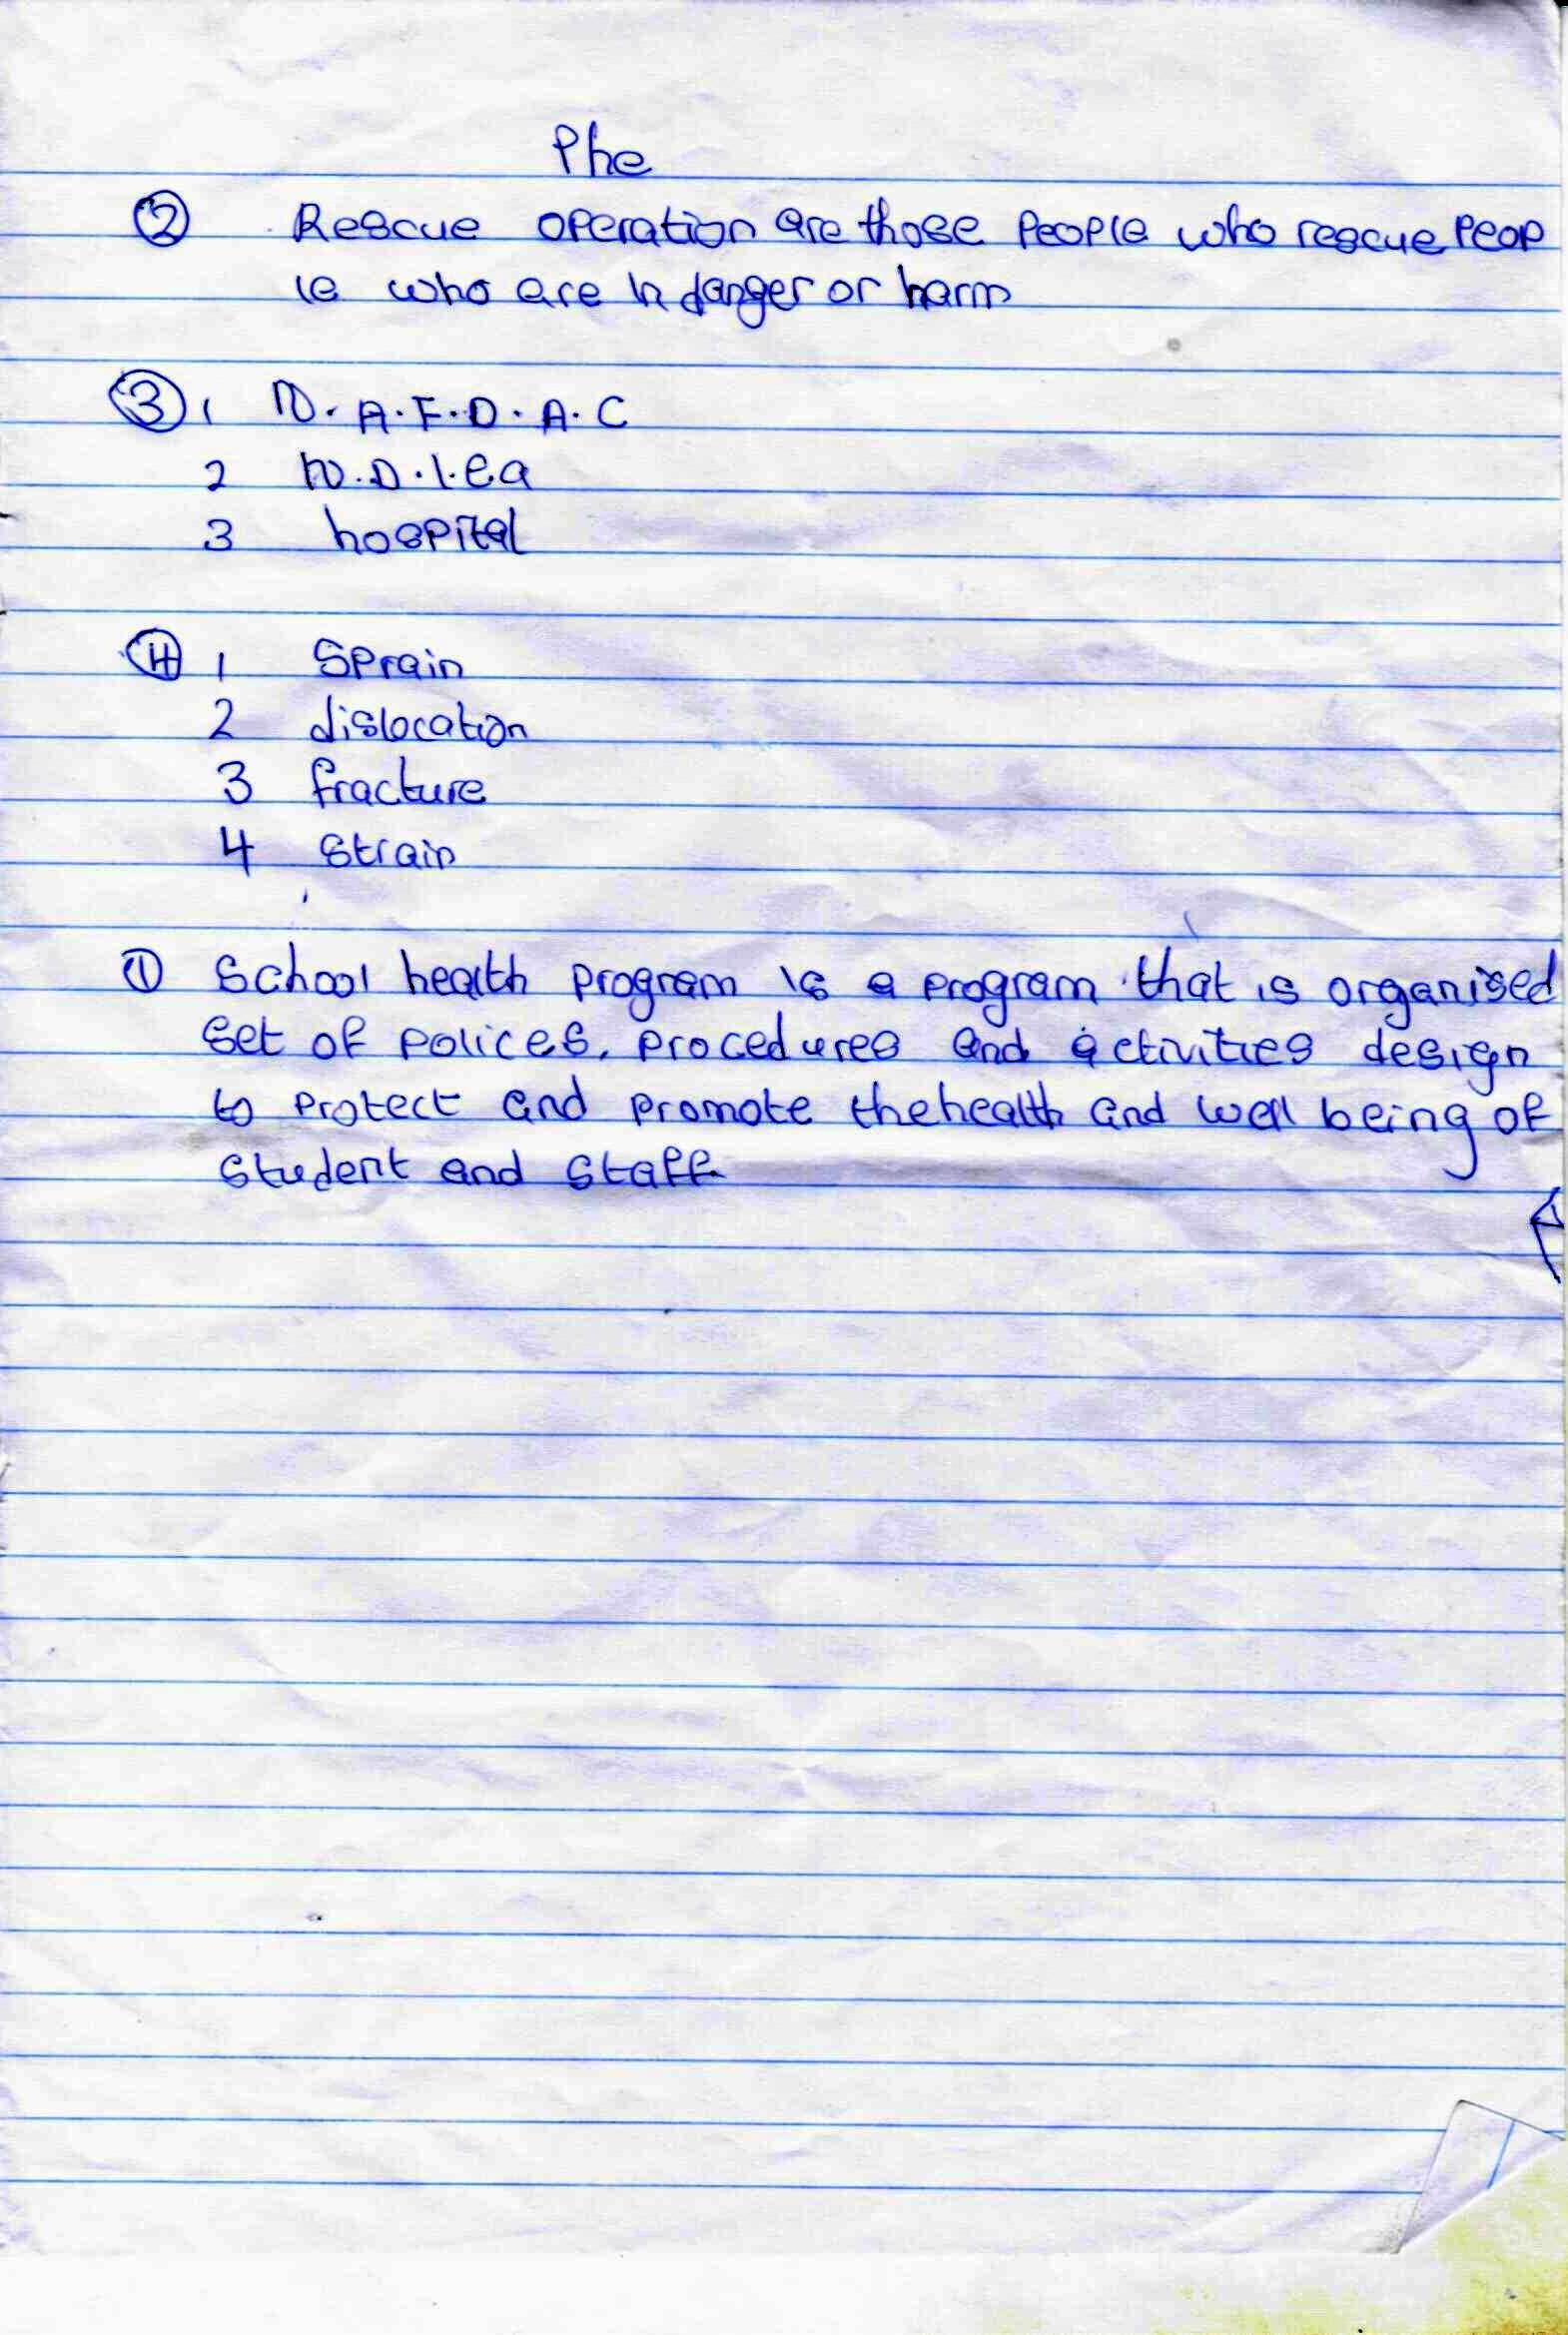 Phe
② Rescue operation are those people who rescue peop
le who are in danger or harm
③ 1 N.A.F.D.A.C
2 N.D.l.ea
3 hospital
④ 1 Sprain
2 dislocation
3 fracture
4 strain
① School health program is a program that is organised
set of polices, procedures and activities design
to protect and promote the health and well being of
student and staff